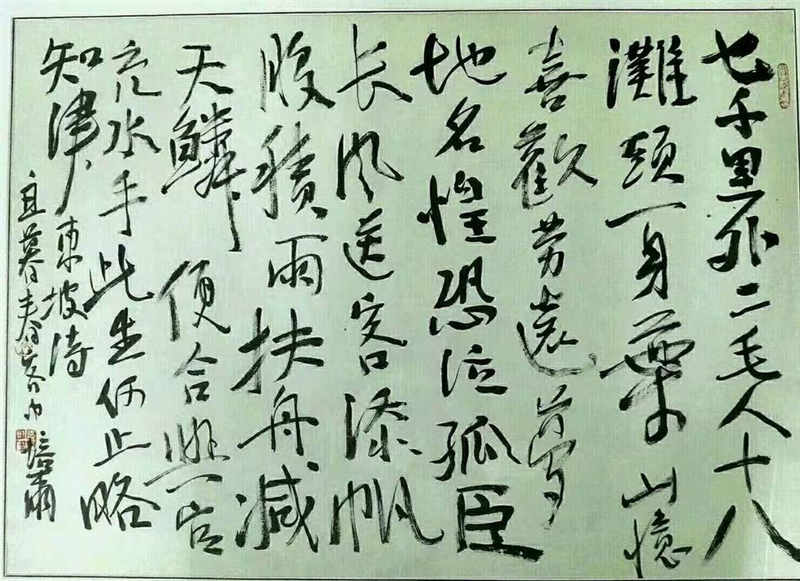 七千里外二毛人十八
灘頭一身葉山憶
喜歡勞遠夢
地名惶恐泣孤臣
长风送客添帆
腹積雨扶舟減
天鱗便合與官
充水手此生何止略
知津
東坡诗
暮春